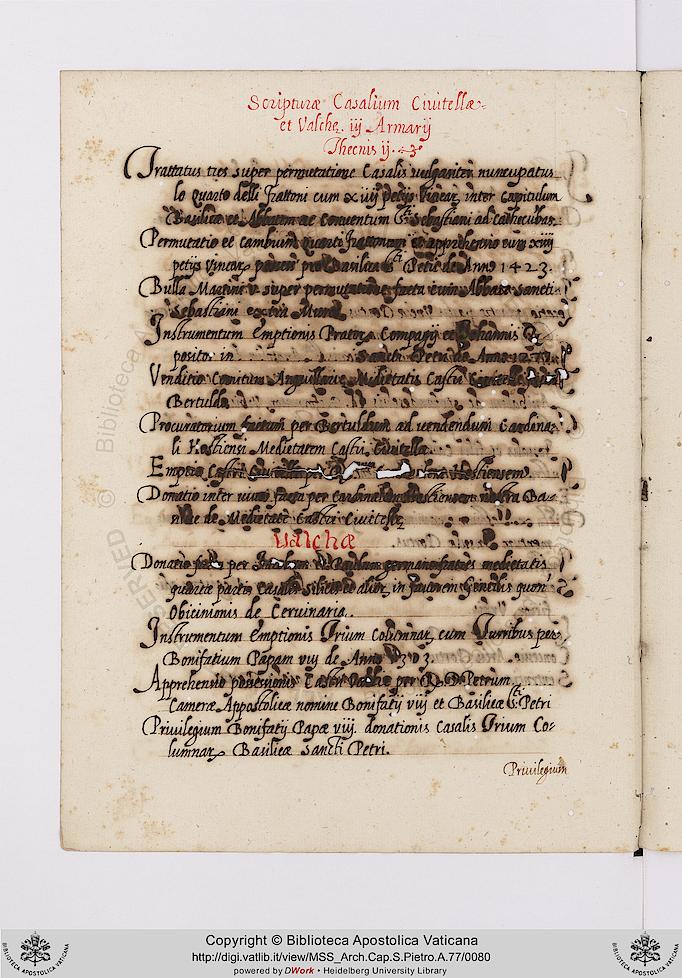 Scripturæ Casalium Ciuitellæ
et Valchę. iij Armarij
Thecnis ij.
Trattatus tres super permutatione Casalis uulgariter nuncupatus
lo quarto delli Frattoni cum xiiij petijs Vinear, inter Capitulum
Basilicæ et Abbatem ac Conuentum Sti Sebastiani ad Cathecubas.
Permutatio et cambium quarti Frattonum et apprehensio cum xiiij
petijs Vinear, Basilica Sti Petri de Anno 1423.
Bulla Martini v super permutatione facta cum Abbate Sancti
Sebastiani extra Muros
Instrumentum Emptionis Prator, Compagij et Iohannis
positor in Sancti Petri de Anno
Venditio Comitum Anguillariæ Medietatis Castri
Bertuldo
Procuratorium factum per Bertuldum ad vendendum Cardina-
li Hostiensi Medietatem Castri Ciuitella
Emptio Castri Hostiensem.
Donatio inter uiuos facta per Cardinalem Hostiensem nostra Ba-
silicæ de Medietate Castri Ciuitellę
Valchæ
Donatio facta per et Paulum germanos fratres medietatis
quartæ partis Casalis Silicis et alior, in fauorem Gentilis quon
Obicinionis de Ceruinaria.
Instrumentum Emptionis Trium Columnar, cum Turribus per
Bonifatium Papam viij de Anno 1303.
Apprehensio possessionis Castri Valchę per R. D. Petrum
Cameræ Appostolicæ nomine Bonifatij viij et Basilicæ Sti Petri
Priuilegium Bonifatij Papæ viij. donationis Casalis Trium Co-
lumnar, Basilicæ Sancti Petri.
Priuilegium
Copyright © Biblioteca Apostolica Vaticana
http://digi.vatlib.it/view/MSS_Arch.Cap.S.Pietro.A.77/0080
powered by DWork • Heidelberg University Library